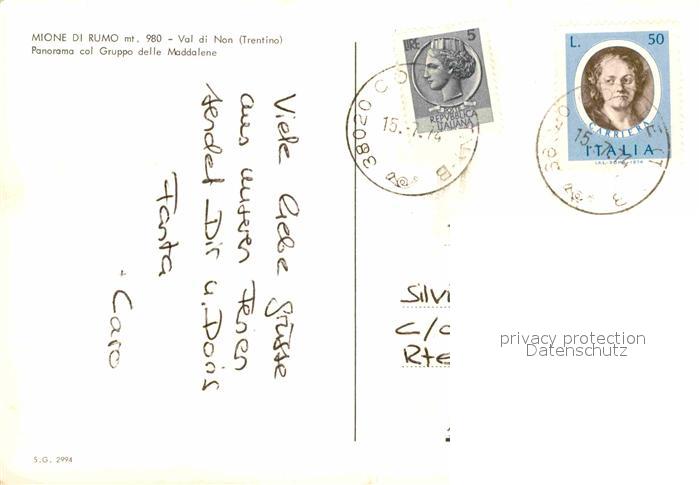 MIONE DI RUMO mt. 980 - Val di Non (Trentino)
Panorama col Gruppo delle Maddalene
LIRE 5
POSTE
REPUBBLICA
ITALIANA
38020
15.-7.74
L. 50
CARRIERA
ITALIA
I.P.S.-ROMA-1974
Viele liebe Grüsse
aus unseren Ferien
sendet Dir u. Doris
Fanta
- Caro
Silvi
c/o
Rte
privacy protection
Datenschutz
S.G. 2994